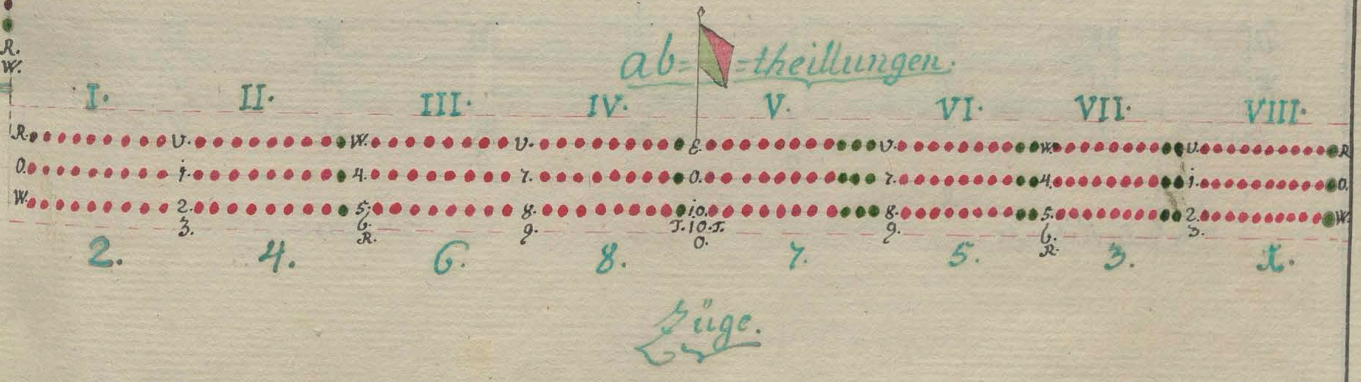 R.
W.
ab= =theillungen.
I. II. III. IV. V. VI. VII. VIII.
R. U. W. U. E. U. W. U. R
O. 1. 4. 7. O. 7. 4. 1. O.
W. 2. 5. 8. 10. 8. 5. 2. W.
3. 6. 9. T. 10. T. 9. 6. 3.
R. O. R.
2. 4. 6. 8. 7. 5. 3. 1.
Züge.